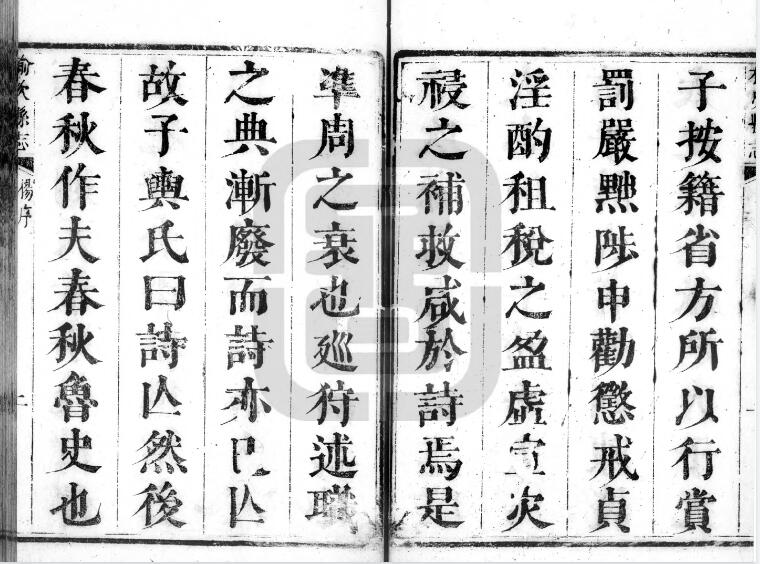 子按籍省方所以行賞
罰嚴黜陟申勸懲戒貞
淫酌租稅之盈虛宣次
祲之補救咸於詩焉是
凖周之衰也廵狩述職
之典漸廢而詩亦已亾
故子輿氏曰詩亾然後
春秋作夫春秋魯史也
榆次縣志 楊序